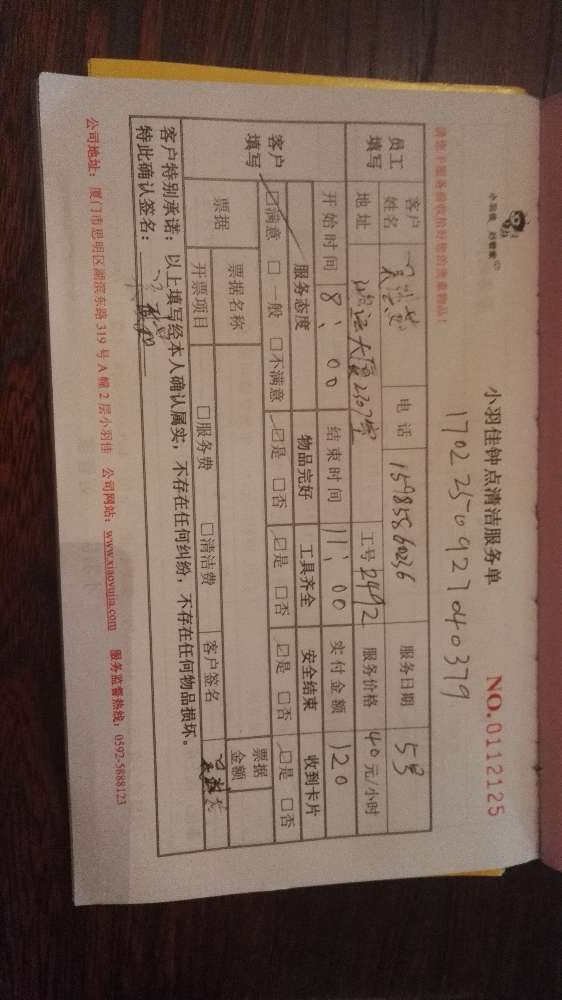 小羽佳 好管家
小羽佳钟点清洁服务单 NO.0112125
1702250927040379
员工填写 客户姓名 电话 15985860236 服务日期 5号
地址 2307室 工号 2492 服务价格 40元/小时
开始时间 8:00 结束时间 11:00 实付金额 120
客户填写 服务态度 物品完好 工具齐全 安全结束 收到卡片
☑满意 □一般 □不满意 ☑是 □否 ☑是 □否 ☑是 □否 ☑是 □否
票据 票据名称 票据金额
开票项目 □服务费 □清洁费 客户签名
客户特别承诺：以上填写经本人确认属实，不存在任何纠纷，不存在任何物品损坏。
特此确认签名：
公司地址：厦门市思明区湖滨东路319号A幢2层小羽佳 公司网站：www.xiaoyujia.com 服务监督热线：0592-5888123